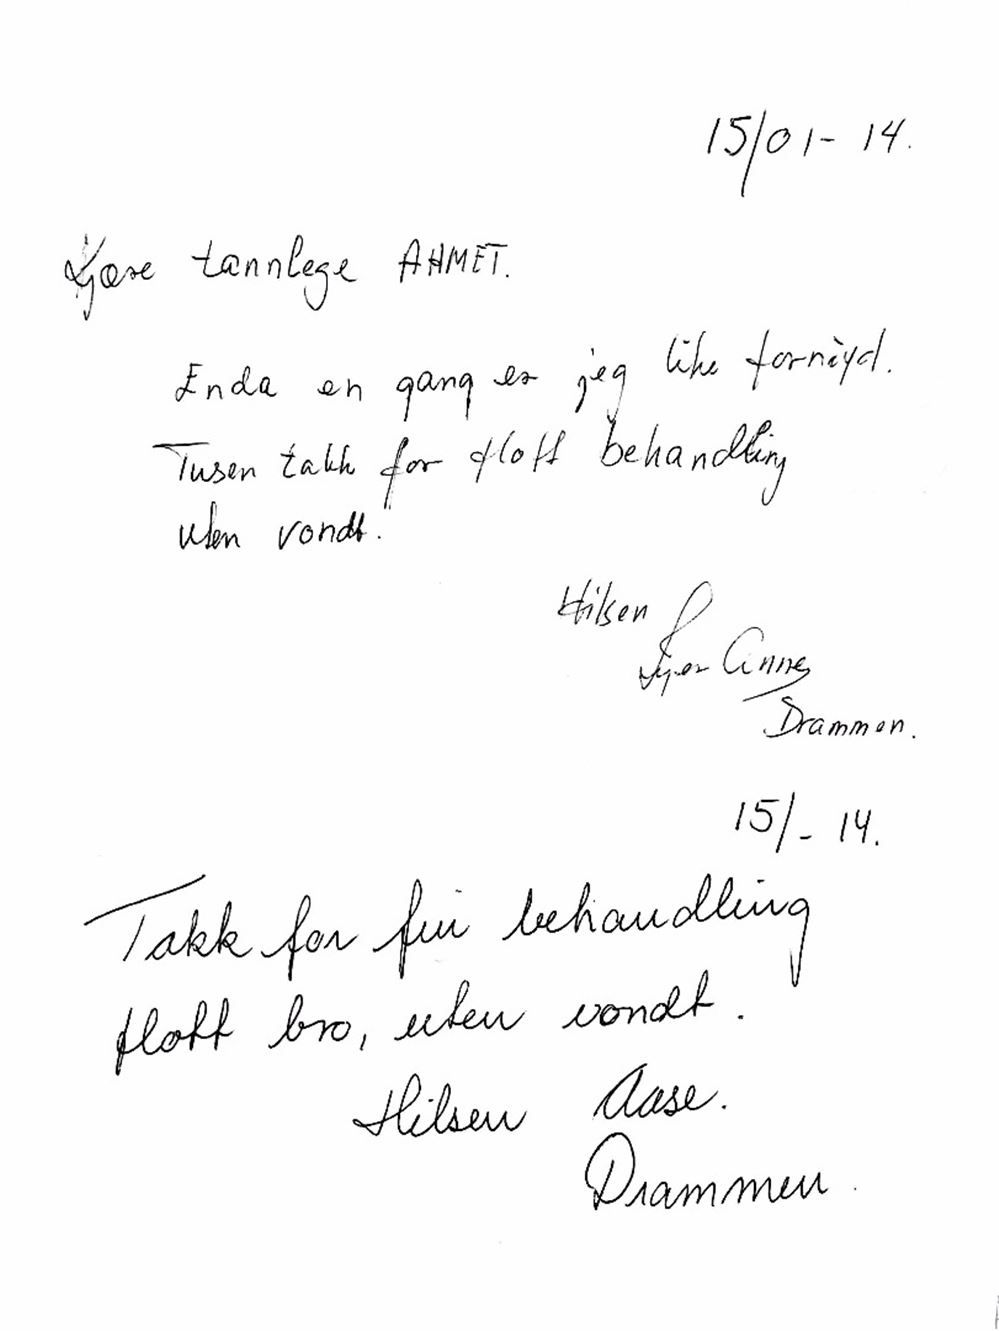 15/01-14.
Kjære tannlege AHMET.
Enda en gang er jeg like fornøyd.
Tusen takk for flott behandling
uten vondt.
Hilsen
Anne
Drammen.
15/-14.
Takk for fin behandling
flott bro, uten vondt.
Hilsen Aase.
Drammen.